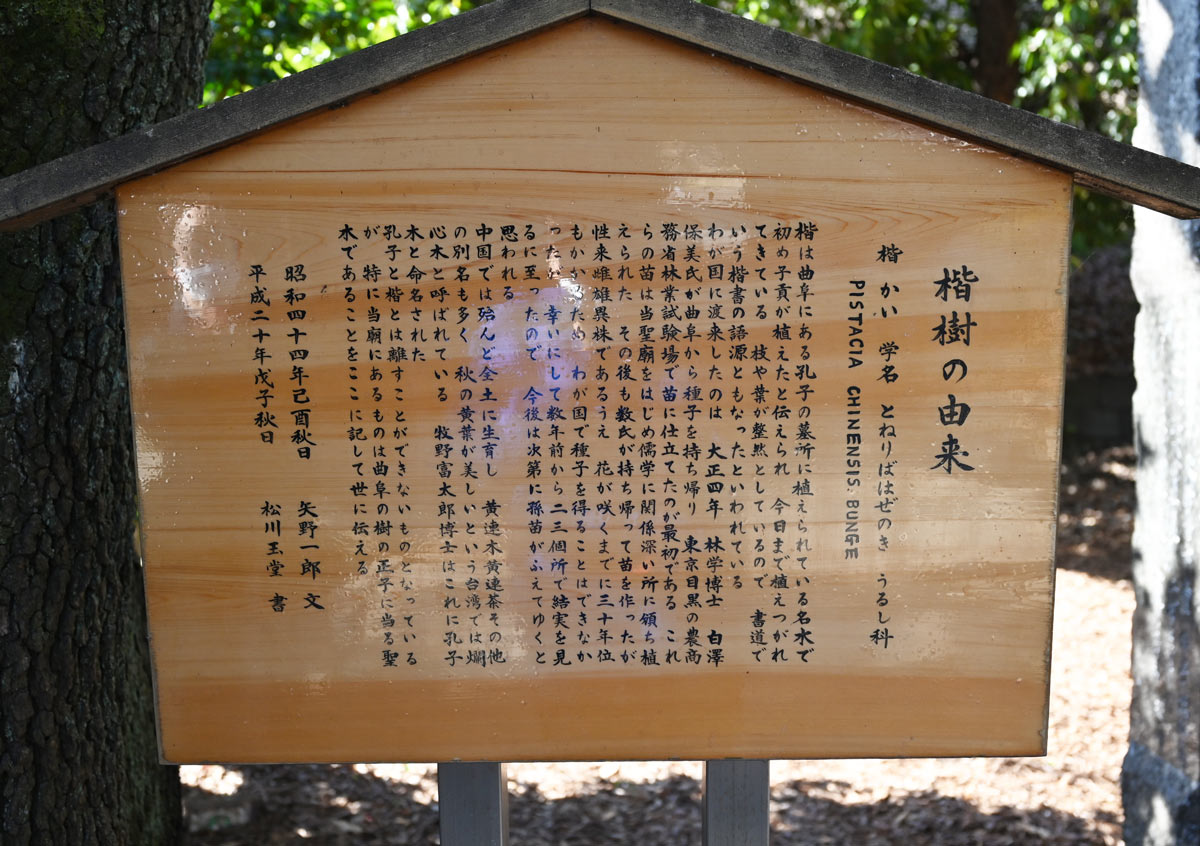 楷樹の由来
楷 かい 学名 とねりばはぜのき うるし科
PISTACIA CHINENSIS. BUNGE
楷は曲阜にある孔子の墓所に植えられている名木で
初め子貢が植えたと伝えられ 今日まで植えつがれ
てきている 枝や葉が整然としているので 書道で
いう楷書の語源ともなったといわれている
わが国に渡来したのは 大正四年 林学博士 白澤
保美氏が曲阜から種子を持ち帰り 東京目黒の農商
務省林業試験場で苗に仕立てたのが最初である これ
らの苗は当聖廟をはじめ儒学に関係深い所に領ち植
えられた その後も数氏が持ち帰って苗を作ったが
性来雌雄異株であるうえ 花が咲くまでに三十年位
もかかるため わが国で種子を得ることはできなか
ったが 幸いにして数年前から二三個所で結実を見
るに至ったので 今後は次第に孫苗がふえてゆくと
思われる
中国では殆んど全土に生育し 黄連木黄連茶その他
の別名も多く 秋の黄葉が美しいという台湾では爛
心木と呼ばれている 牧野富太郎博士はこれに孔子
木と命名された
孔子と楷とは離すことができないものとなっている
が 特に当廟にあるものは曲阜の樹の正子に当る聖
木であることをここに記して世に伝える
昭和四十四年己酉秋日 矢野一郎 文
平成二十年戊子秋日 松川玉堂 書